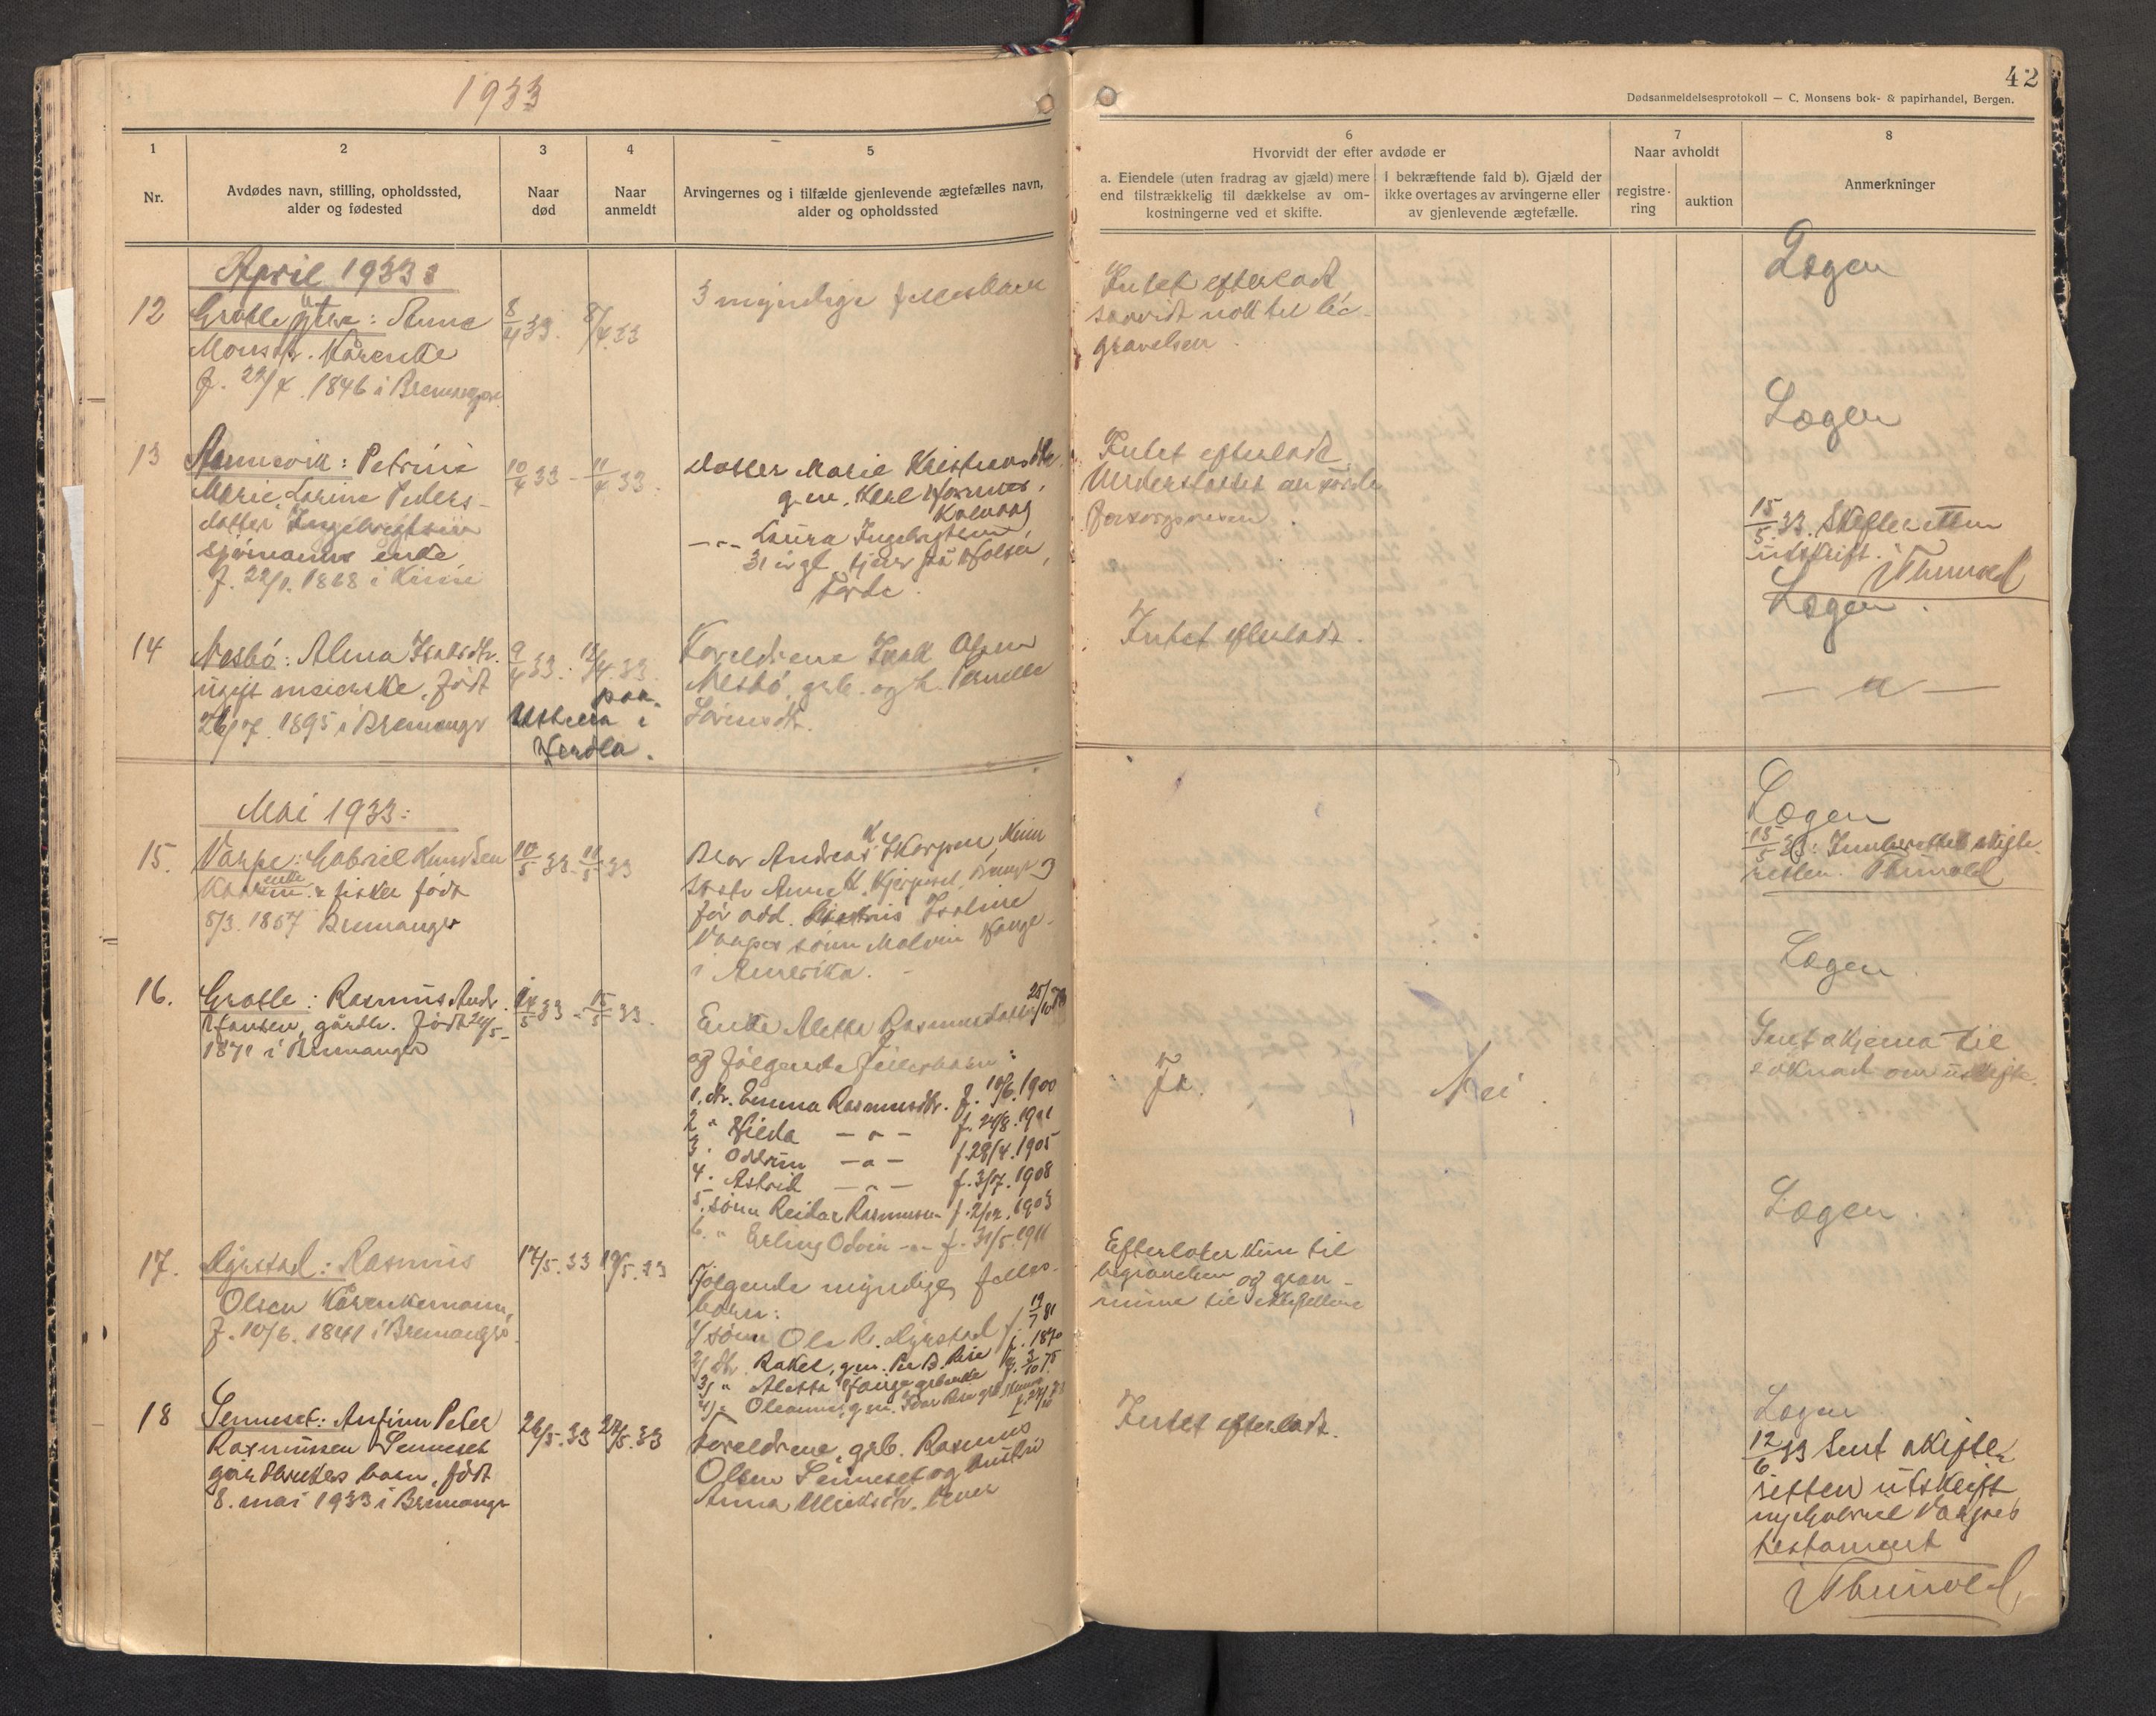 1933
42
Dødsanmeldelsesprotokoll — C. Monsens bok- & papirhandel, Bergen.
1
2
3
4
5
6
7
8
Nr.
Avdødes navn, stilling, opholdssted,
alder og fødested
Naar
død
Naar
anmeldt
Arvingernes og i tilfælde gjenlevende ægtefælles navn,
alder og opholdssted
Hvorvidt der efter avdøde er
a. Eiendele (uten fradrag av gjæld) mere
end tilstrækkelig til dækkelse av om-
kostningerne ved et skifte.
I bekræftende fald b). Gjæld der
ikke overtages av arvingerne eller
av gjenlevende ægtefælle.
Naar avholdt
registre-
ring
auktion
Anmerkninger
April 1933:
12
Grotle ytre: Anne
Monsdtr. Kårenke
f. 1846 i Bremanger
8/4 33.
8/4 33
3 myndige fellesbarn
Intet efterladt
saavidt nokk til be-
gravelsen.
Lægen
13
Petrine
Marie Larine Peders-
datter Ingebrigtsen
sjømanns enke
f. 22/1. 1868 i Kinn
10/4 33 -
11/4 33.
Datter Marie
gm. Karl
Kalvaag
-"- Laura Ingebrigtsen
31 år gl. tjener på Holsen,
Førde.
Intet efterladt
Understøttet av
forsorgsvesen.
Lægen
15/5 33. Skifteretten
utskrift.
Thunold
14
Nesbø: Alma Isaksdtr.
ugift meierske. født
26/7. 1895 i Bremanger
9/4 33.
12/4 33.
paa
i
Herdla.
Foreldrene Isak Olsen
Nesbø, grb. og h. Pernille
Intet efterladt.
Lægen.
— " —
Mai 1933:
15.
Vaage: Gabriel Knudsen
enke
& fisker født
5/3. 1857 Bremanger
10/5 33 -
11/5 33
Bror Andreas K. Skorpen, Kinn
Søster Anne K.
før avd. Isaline
sønn Malvin Hauge
i Amerika.
Lægen
15/5 33: Innberettet skifte-
retten. Thunold
16.
Grotle: Rasmus Andr.
Hansen, gårdbr. født 24/5-
1871 i Bremanger
14/5 33 -
15/5 33.
Enke Aletta Rasmusdatter
og følgende fellesbarn:
1. dtr. Emma Rasmusdtr. f. 10/6. 1900
2 " Hilda — " — f. 24/8. 1901
3 " Oddrun — " — f. 28/4. 1905
4. " Astrid — " — f. 3/7. 1908
5. sønn Reidar Rasmussen f. 2/12. 1903
6. " Erling Odvin -"- f. 31/5. 1911
Ja.
Nei.
Lægen
Sendt skjema til
søknad om uskifte.
17.
Dyrstad: Rasmus
Olsen Kårenkemann,
f. 10/6. 1841 i Bremanger
17/5. 33
19/5. 33
Følgende myndige felles-
barn:
1/ sønn Ole R. Dyrstad f. 19/7 81
2/ dtr. Rakel, gm. Per B. Rise f. 1870
3/ " Aletta Hauge gbr.enke f. 3/10 75
Efterlater kun til
begravelsen og gran-
Lægen.
18
Senneset: Anfinn Peter
Rasmussen Senneset
gårdbrukers barn. født
8. mai 1933 i Bremanger
26/5. 33
27/5. 33
Foreldrene, grb. Rasmus
Olsen Senneset og hustru
Anna
Intet efterladt.
Lægen
12/6 33 Sent skifte-
retten utskrift
av Gabriel Vaages
testament
Thunold